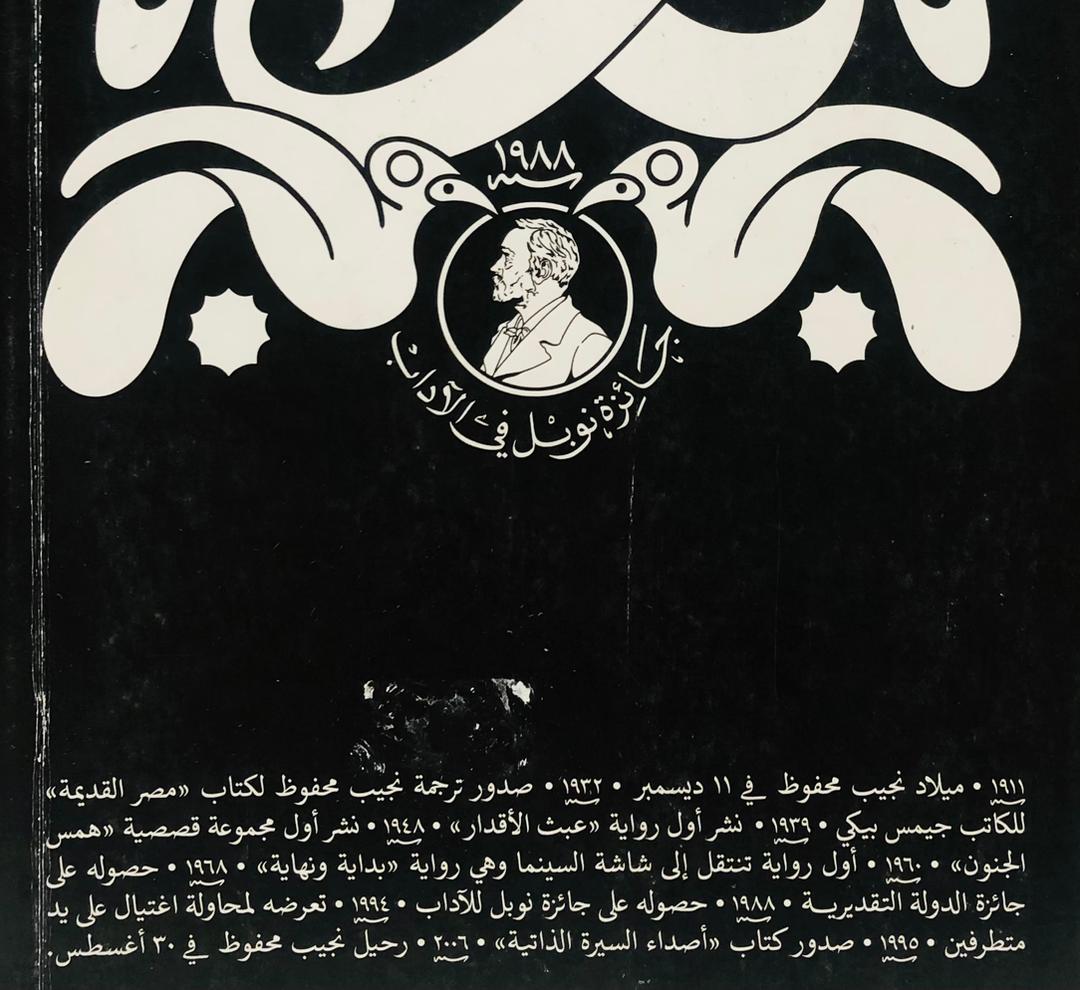 ١٩٨٨
سنه
جائزة نوبل في الآداب
١٩١١ • ميلاد نجيب محفوظ في ١١ ديسمبر • ١٩٣٢ • صدور ترجمة نجيب محفوظ لكتاب «مصر القديمة»
للكاتب جيمس بيكي • ١٩٣٩ • نشر أول رواية «عبث الأقدار» • ١٩٤٨ • نشر أول مجموعة قصصية «همس
الجنون» • ١٩٦٠ • أول رواية تنتقل إلى شاشة السينما وهي رواية «بداية ونهاية» • ١٩٦٨ • حصوله على
جائزة الدولة التقديرية • ١٩٨٨ • حصوله على جائزة نوبل للآداب • ١٩٩٤ • تعرضه لمحاولة اغتيال على يد
متطرفين • ١٩٩٥ • صدور كتاب «أصداء السيرة الذاتية» • ٢٠٠٦ • رحيل نجيب محفوظ في ٣٠ أغسطس.